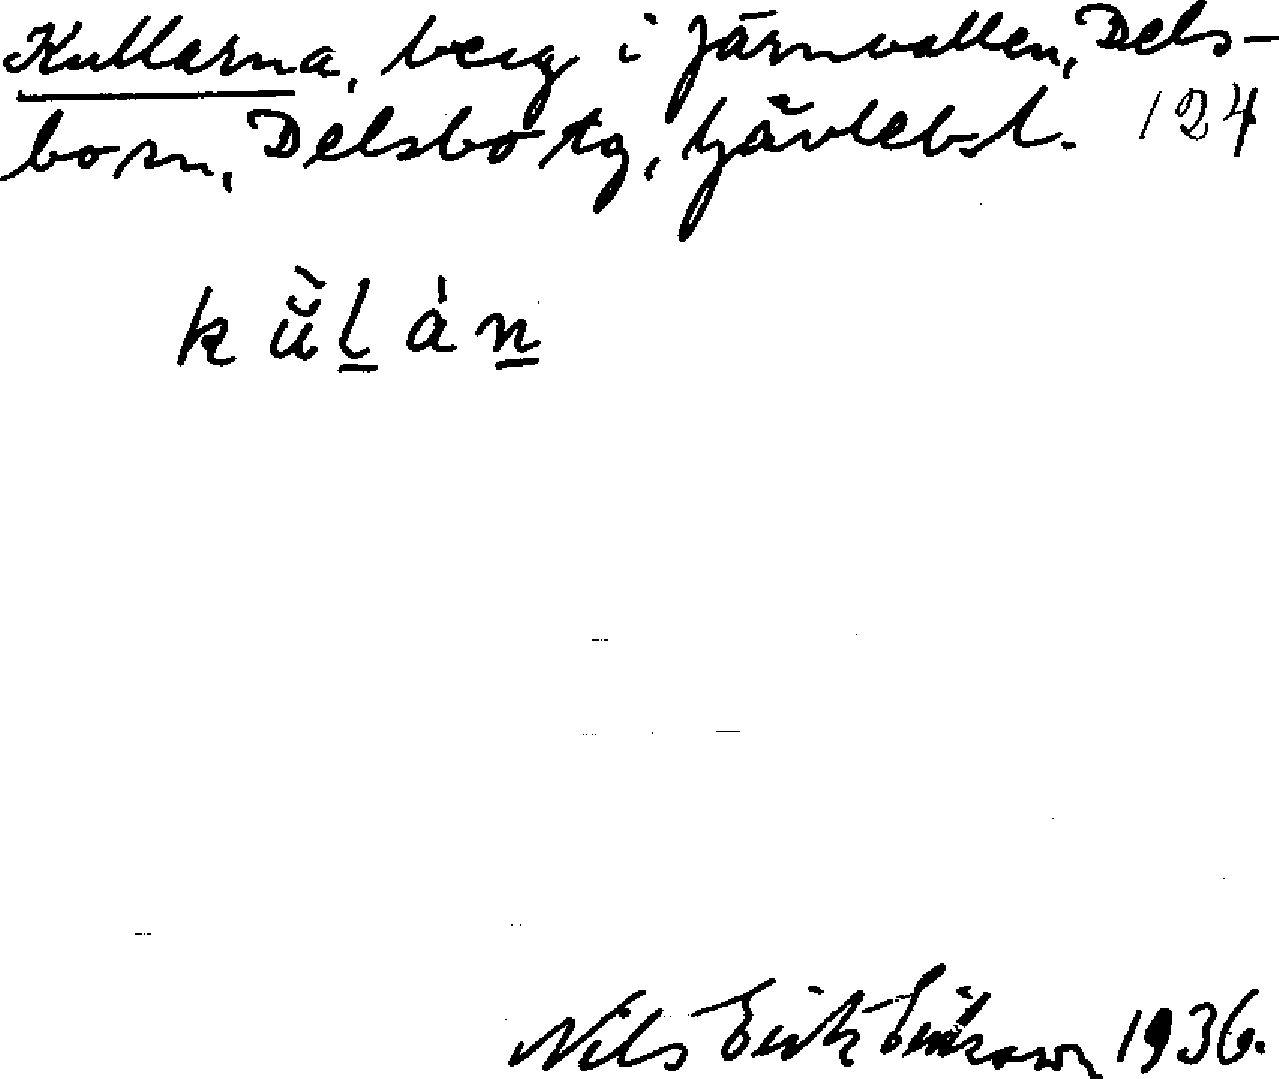 Kullarna, berg i Järnvallen, Dels-
born, Delsbo tg, Gävlebsl. 124
k ŭ̀l̲ ȧn̲
Nils Erik Eriksson 1936.